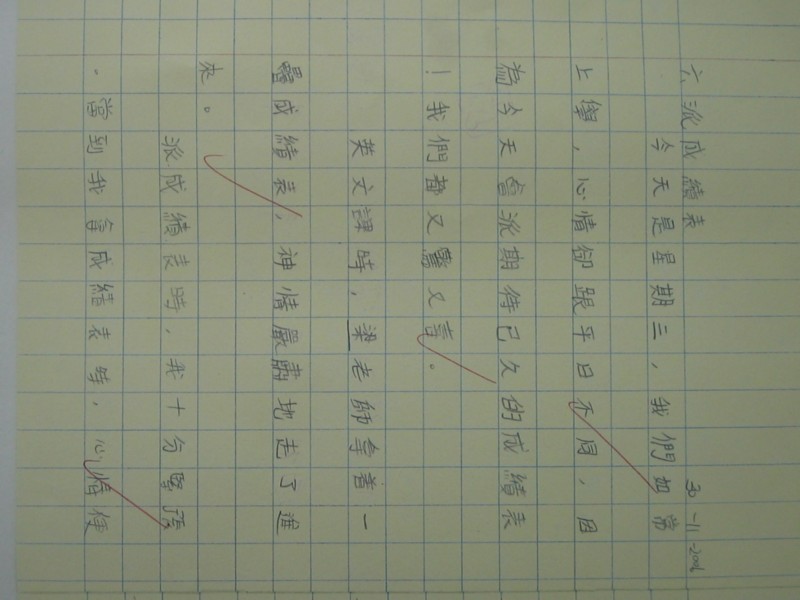 六派成績表 30-11-2006
今天是星期三，我們如常
上學，心情卻跟平日不同，因
為今天會派期待已久的成績表
！我們都又驚又喜。
英文課時，梁老師拿着一
疊成績表，神情嚴肅地走了進
來。
派成績表時，我十分緊張
。當到我拿成績表時，心情便